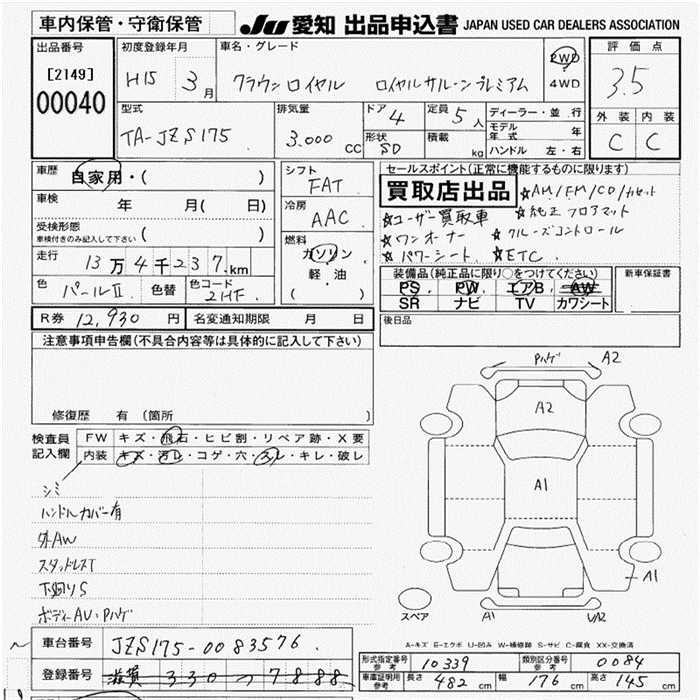 車内保管・守衛保管
JU 愛知 出品申込書 JAPAN USED CAR DEALERS ASSOCIATION
出品番号
[2149]
00040
初度登録年月
H15 3月
車名・グレード
クラウンロイヤル ロイヤルサルーンプレミアム
2WD
4WD
評価点
3.5
外装 内装
C C
型式
TA-JZS175
排気量
3.000 CC
ドア 4
形状 SD
定員 5人
積載 kg
ディーラー・並行
モデル年式 年
ハンドル 左・右
車歴
自家用・( )
車検 年 月( 日)
受検形態
車検付きのみ記入して下さい ( )
走行 13万4千237km
色 パールII 色替 色コード 2HF
シフト
FAT
冷房
AAC
燃料
ガソリン
軽・油
( )
セールスポイント(正常に機能するものに限ります)
買取店出品
☆AM/FM/CD/カセット
☆ユーザー買取車 ☆純正フロアマット
☆ワンオーナー ☆クルーズコントロール
☆パワーシート ☆ETC
装備品(純正品に限り○をつけてください)
PS PW エアB AW
SR ナビ TV カワシート
新車保証書
後日品
R券 12,930 円 名変通知期限 月 日
注意事項申告欄(不具合内容等は具体的に記入して下さい)
修復歴 有(箇所 )
検査員記入欄
FW キズ・飛石・ヒビ割・リペア跡・X要
内装 キズ・汚レ・コゲ・穴・スレ・キレ・破レ
シミ
ハンドルカバー有
外AW
スタッドレスT
下廻りS
ボディーAU・Pハゲ
Pハゲ A2
A2
A1
A1
A1 U/A2
スペア
A-キズ E-エクボ U-凹み W-補修跡 S-サビ C-腐食 XX-交換済
車台番号 JZS175-0083576
登録番号 滋賀 330 7888
形式指定番号 参考 10339 類別区分番号 参考 0084
車庫証明用 参考 長さ 482 cm 幅 176 cm 高さ 145 cm